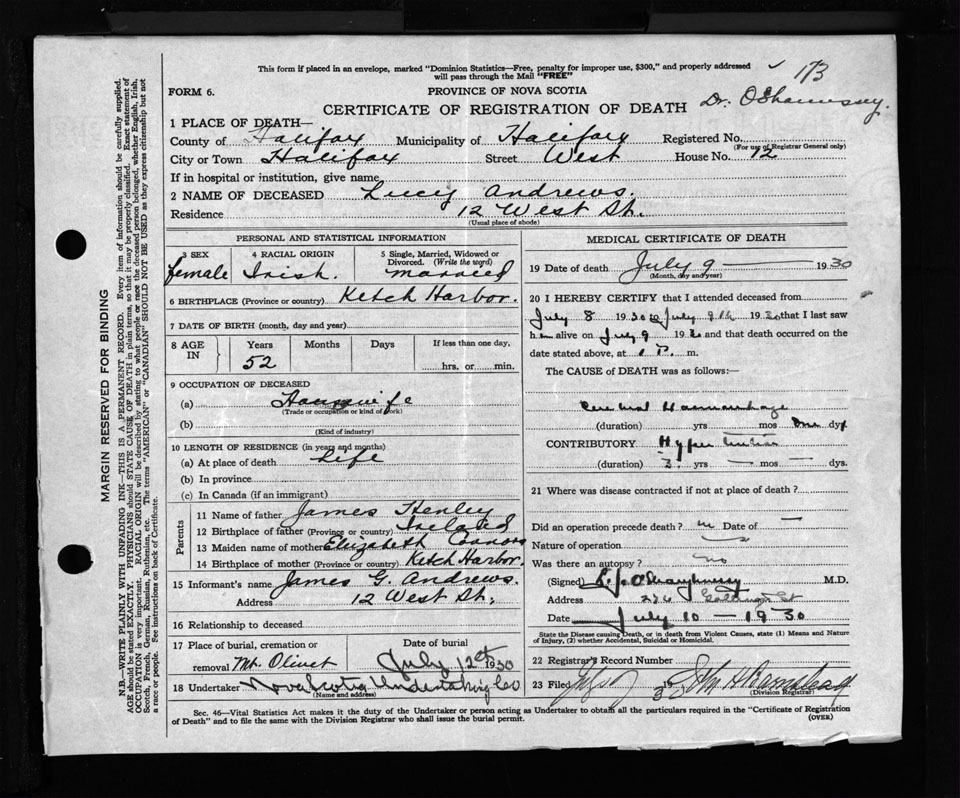 This form if placed in an envelope, marked "Dominion Statistics—Free, penalty for improper use, $300," and properly addressed
will pass through the Mail "FREE"
173
FORM 6.
PROVINCE OF NOVA SCOTIA
CERTIFICATE OF REGISTRATION OF DEATH
Dr. OShaunessey.
1 PLACE OF DEATH—
County of Halifax Municipality of Halifax Registered No.
(For use of Registrar General only)
City or Town Halifax Street West House No. 12
If in hospital or institution, give name
2 NAME OF DECEASED Lucy Andrews.
Residence 12 West St.
(Usual place of abode)
PERSONAL AND STATISTICAL INFORMATION
3 SEX 4 RACIAL ORIGIN 5 Single, Married, Widowed or
Divorced. (Write the word)
female Irish. married
6 BIRTHPLACE (Province or country) Ketch Harbor.
7 DATE OF BIRTH (month, day and year)
8 AGE IN Years Months Days If less than one day,
52 hrs. or min.
9 OCCUPATION OF DECEASED
(a) Housewife
(Trade or occupation or kind of work)
(b)
(Kind of industry)
10 LENGTH OF RESIDENCE (in years and months)
(a) At place of death Life
(b) In province
(c) In Canada (if an immigrant)
Parents
11 Name of father James Henley
12 Birthplace of father (Province or country) Ireland
13 Maiden name of mother Elizabeth Connors
14 Birthplace of mother (Province or country) Ketch Harbor.
15 Informant's name James G. Andrews.
Address 12 West St.
16 Relationship to deceased
17 Place of burial, cremation or Date of burial
removal Mt. Olivet July 12 1930
18 Undertaker Nova Scotia Undertaking Co
(Name and address)
MEDICAL CERTIFICATE OF DEATH
19 Date of death July 9 — 1930
(Month, day and year)
20 I HEREBY CERTIFY that I attended deceased from
July 8 1930 to July 9th 1930 that I last saw
h alive on July 9 1930 and that death occurred on
the date stated above, at P. m.
The CAUSE of DEATH was as follows:—
Cerebral Haemorrhage
(duration) yrs mos One dys
CONTRIBUTORY Hypertension
(duration) 3 yrs — mos — dys.
21 Where was disease contracted if not at place of death?
Did an operation precede death? no Date of —
Nature of operation
Was there an autopsy? no
(Signed) O'Shaughnessy M.D.
Address St
Date July 10 — 1930
State the Disease causing Death, or in death from Violent Causes, state (1) Means and Nature
of Injury, (2) whether Accidental, Suicidal or Homicidal.
22 Registrar's Record Number
23 Filed 19 John
(Division Registrar)
Sec. 46—Vital Statistics Act makes it the duty of the Undertaker or person acting as Undertaker to obtain all the particulars required in the "Certificate of Registration
of Death" and to file the same with the Division Registrar who shall issue the burial permit.
(OVER)
MARGIN RESERVED FOR BINDING
N.B.—WRITE PLAINLY WITH UNFADING INK—THIS IS A PERMANENT RECORD. Every item of information should be carefully supplied.
AGE should be stated EXACTLY. PHYSICIANS should STATE CAUSE OF DEATH in plain terms, so that it may be properly classified. Exact statement of
OCCUPATION is very important. RACIAL ORIGIN will be described by stating to what people or race the deceased person belonged, whether English, Irish,
Scotch, French, German, Russian, Ruthenian, etc. The terms "AMERICAN" or "CANADIAN" SHOULD NOT BE USED as they express citizenship but not
a race or people. See instructions on back of Certificate.